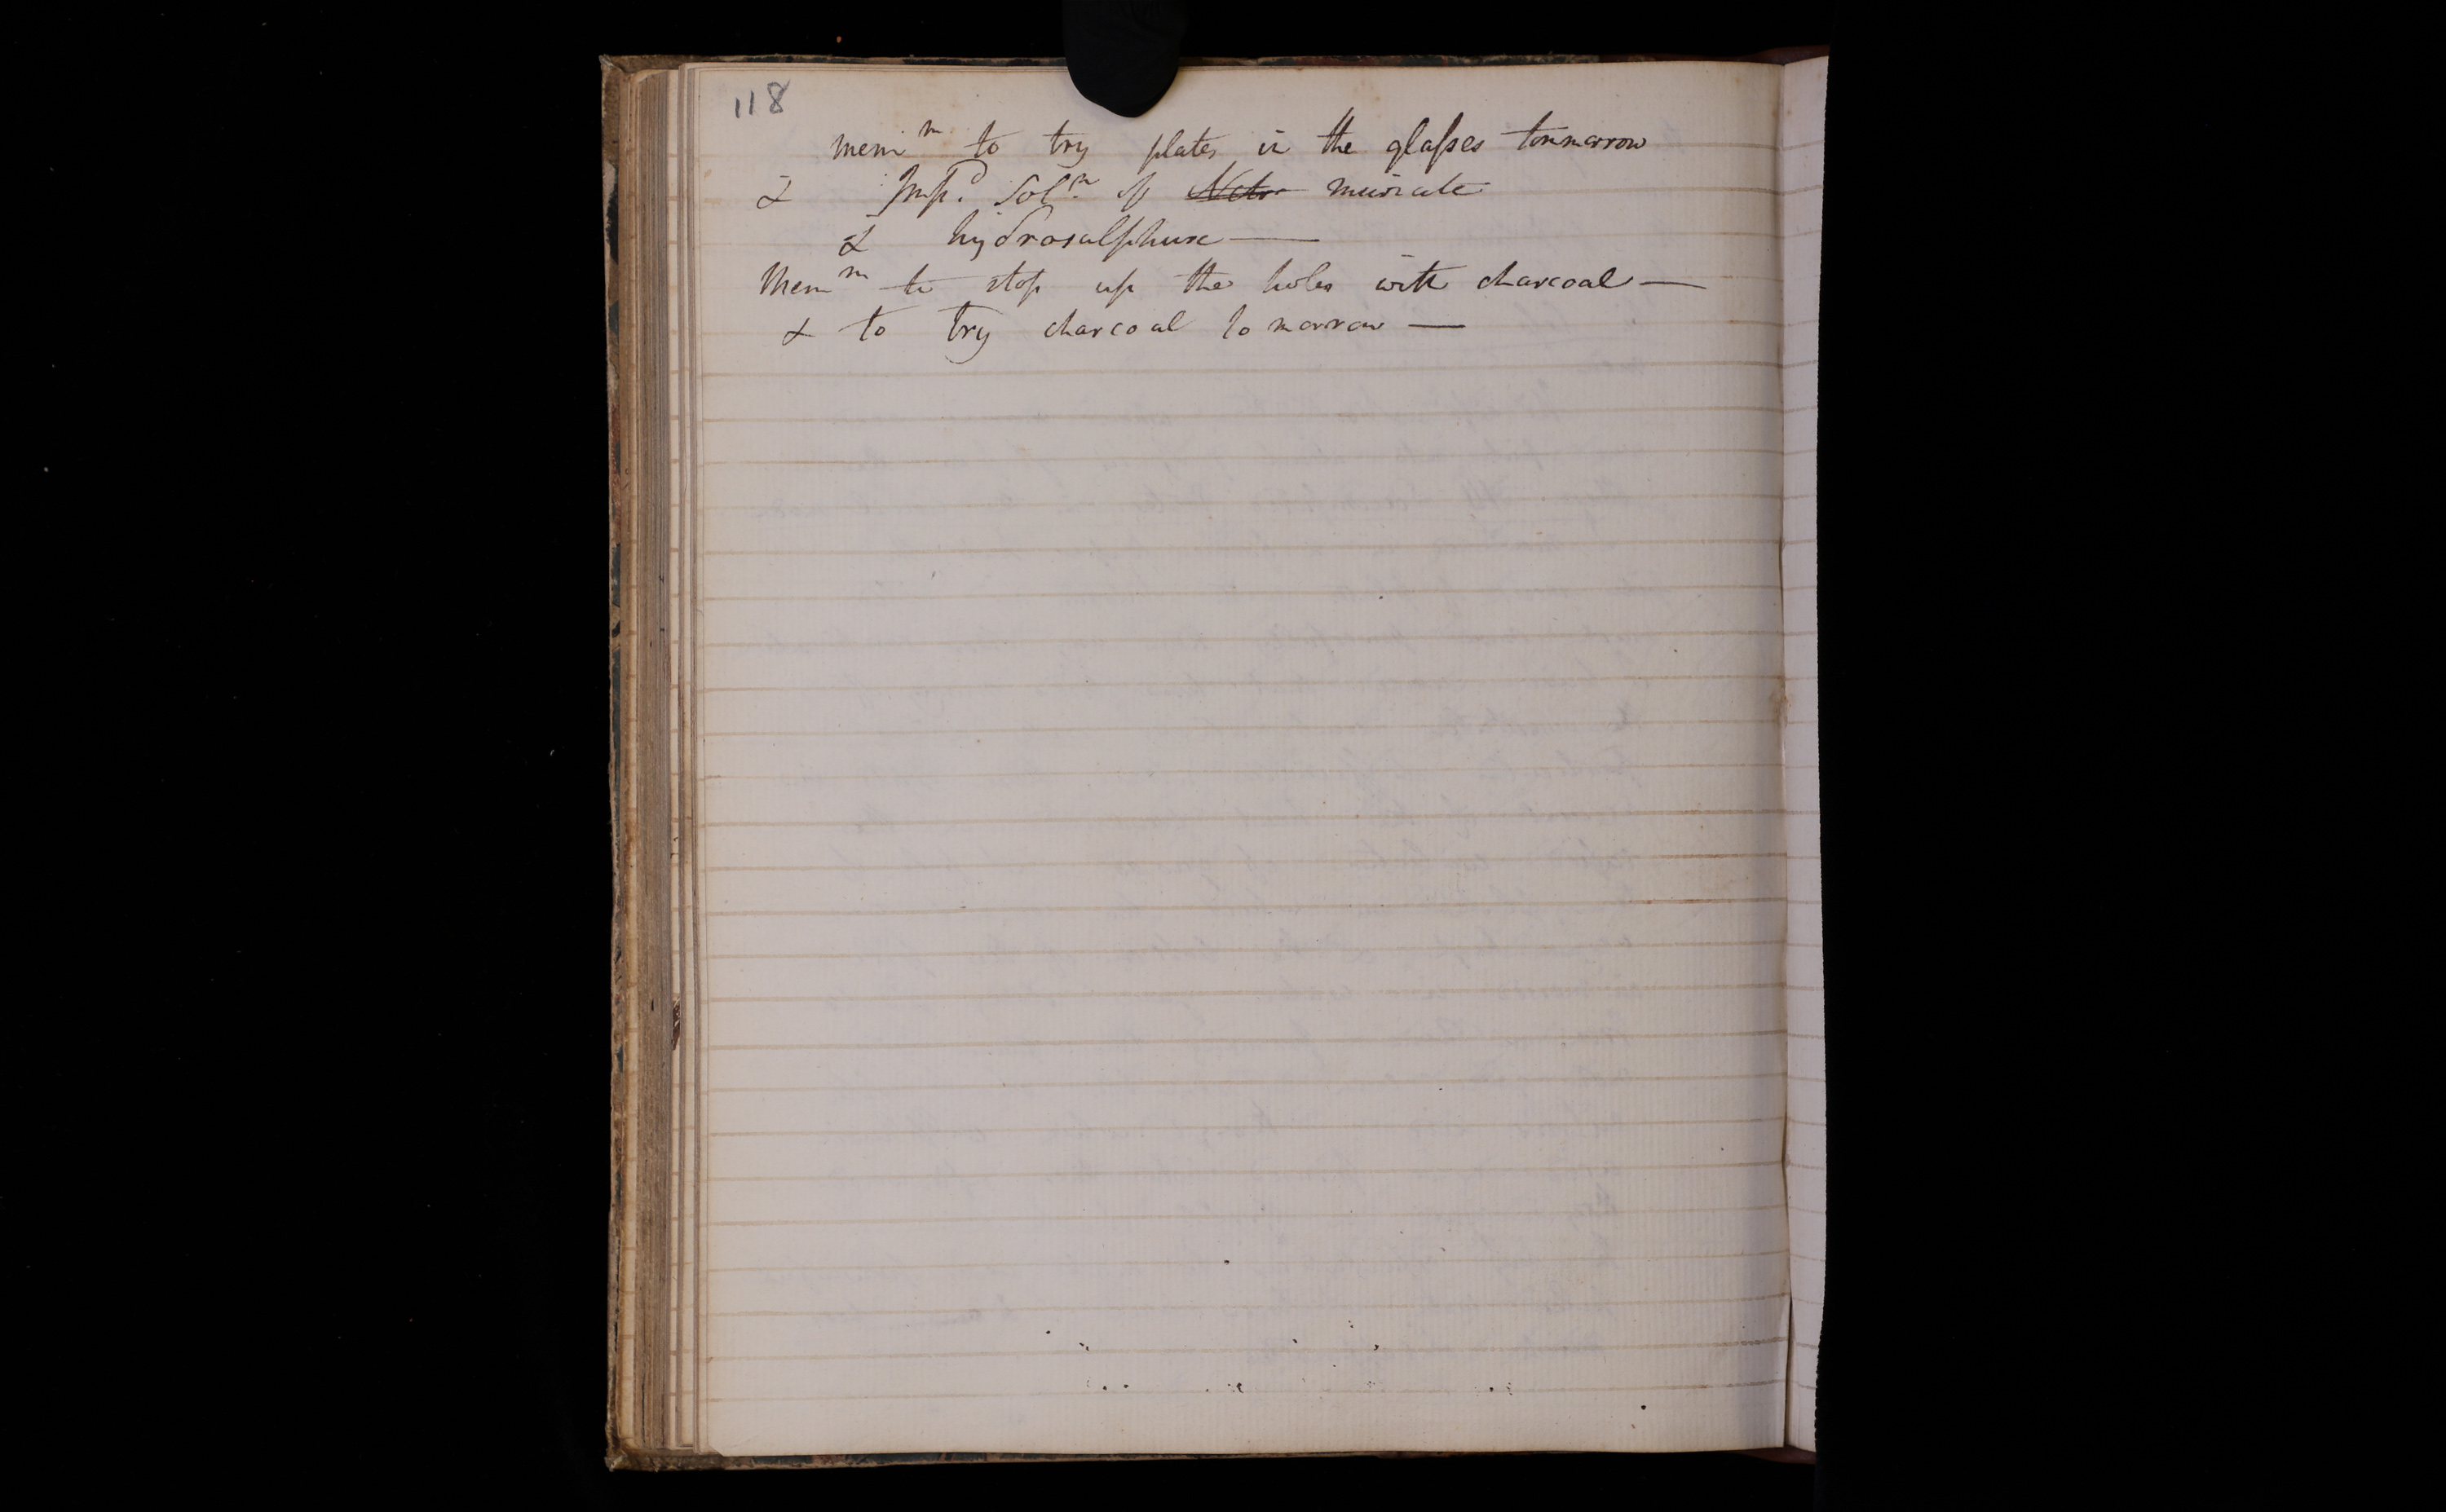 118
mem^m to try plates in the glaſses tommorrow
& Imp^d. Sol^n. of muriate
& hydrosulphure —
Mem^m to stop up the holes with charcoal —
& to try charcoal tomorrow —